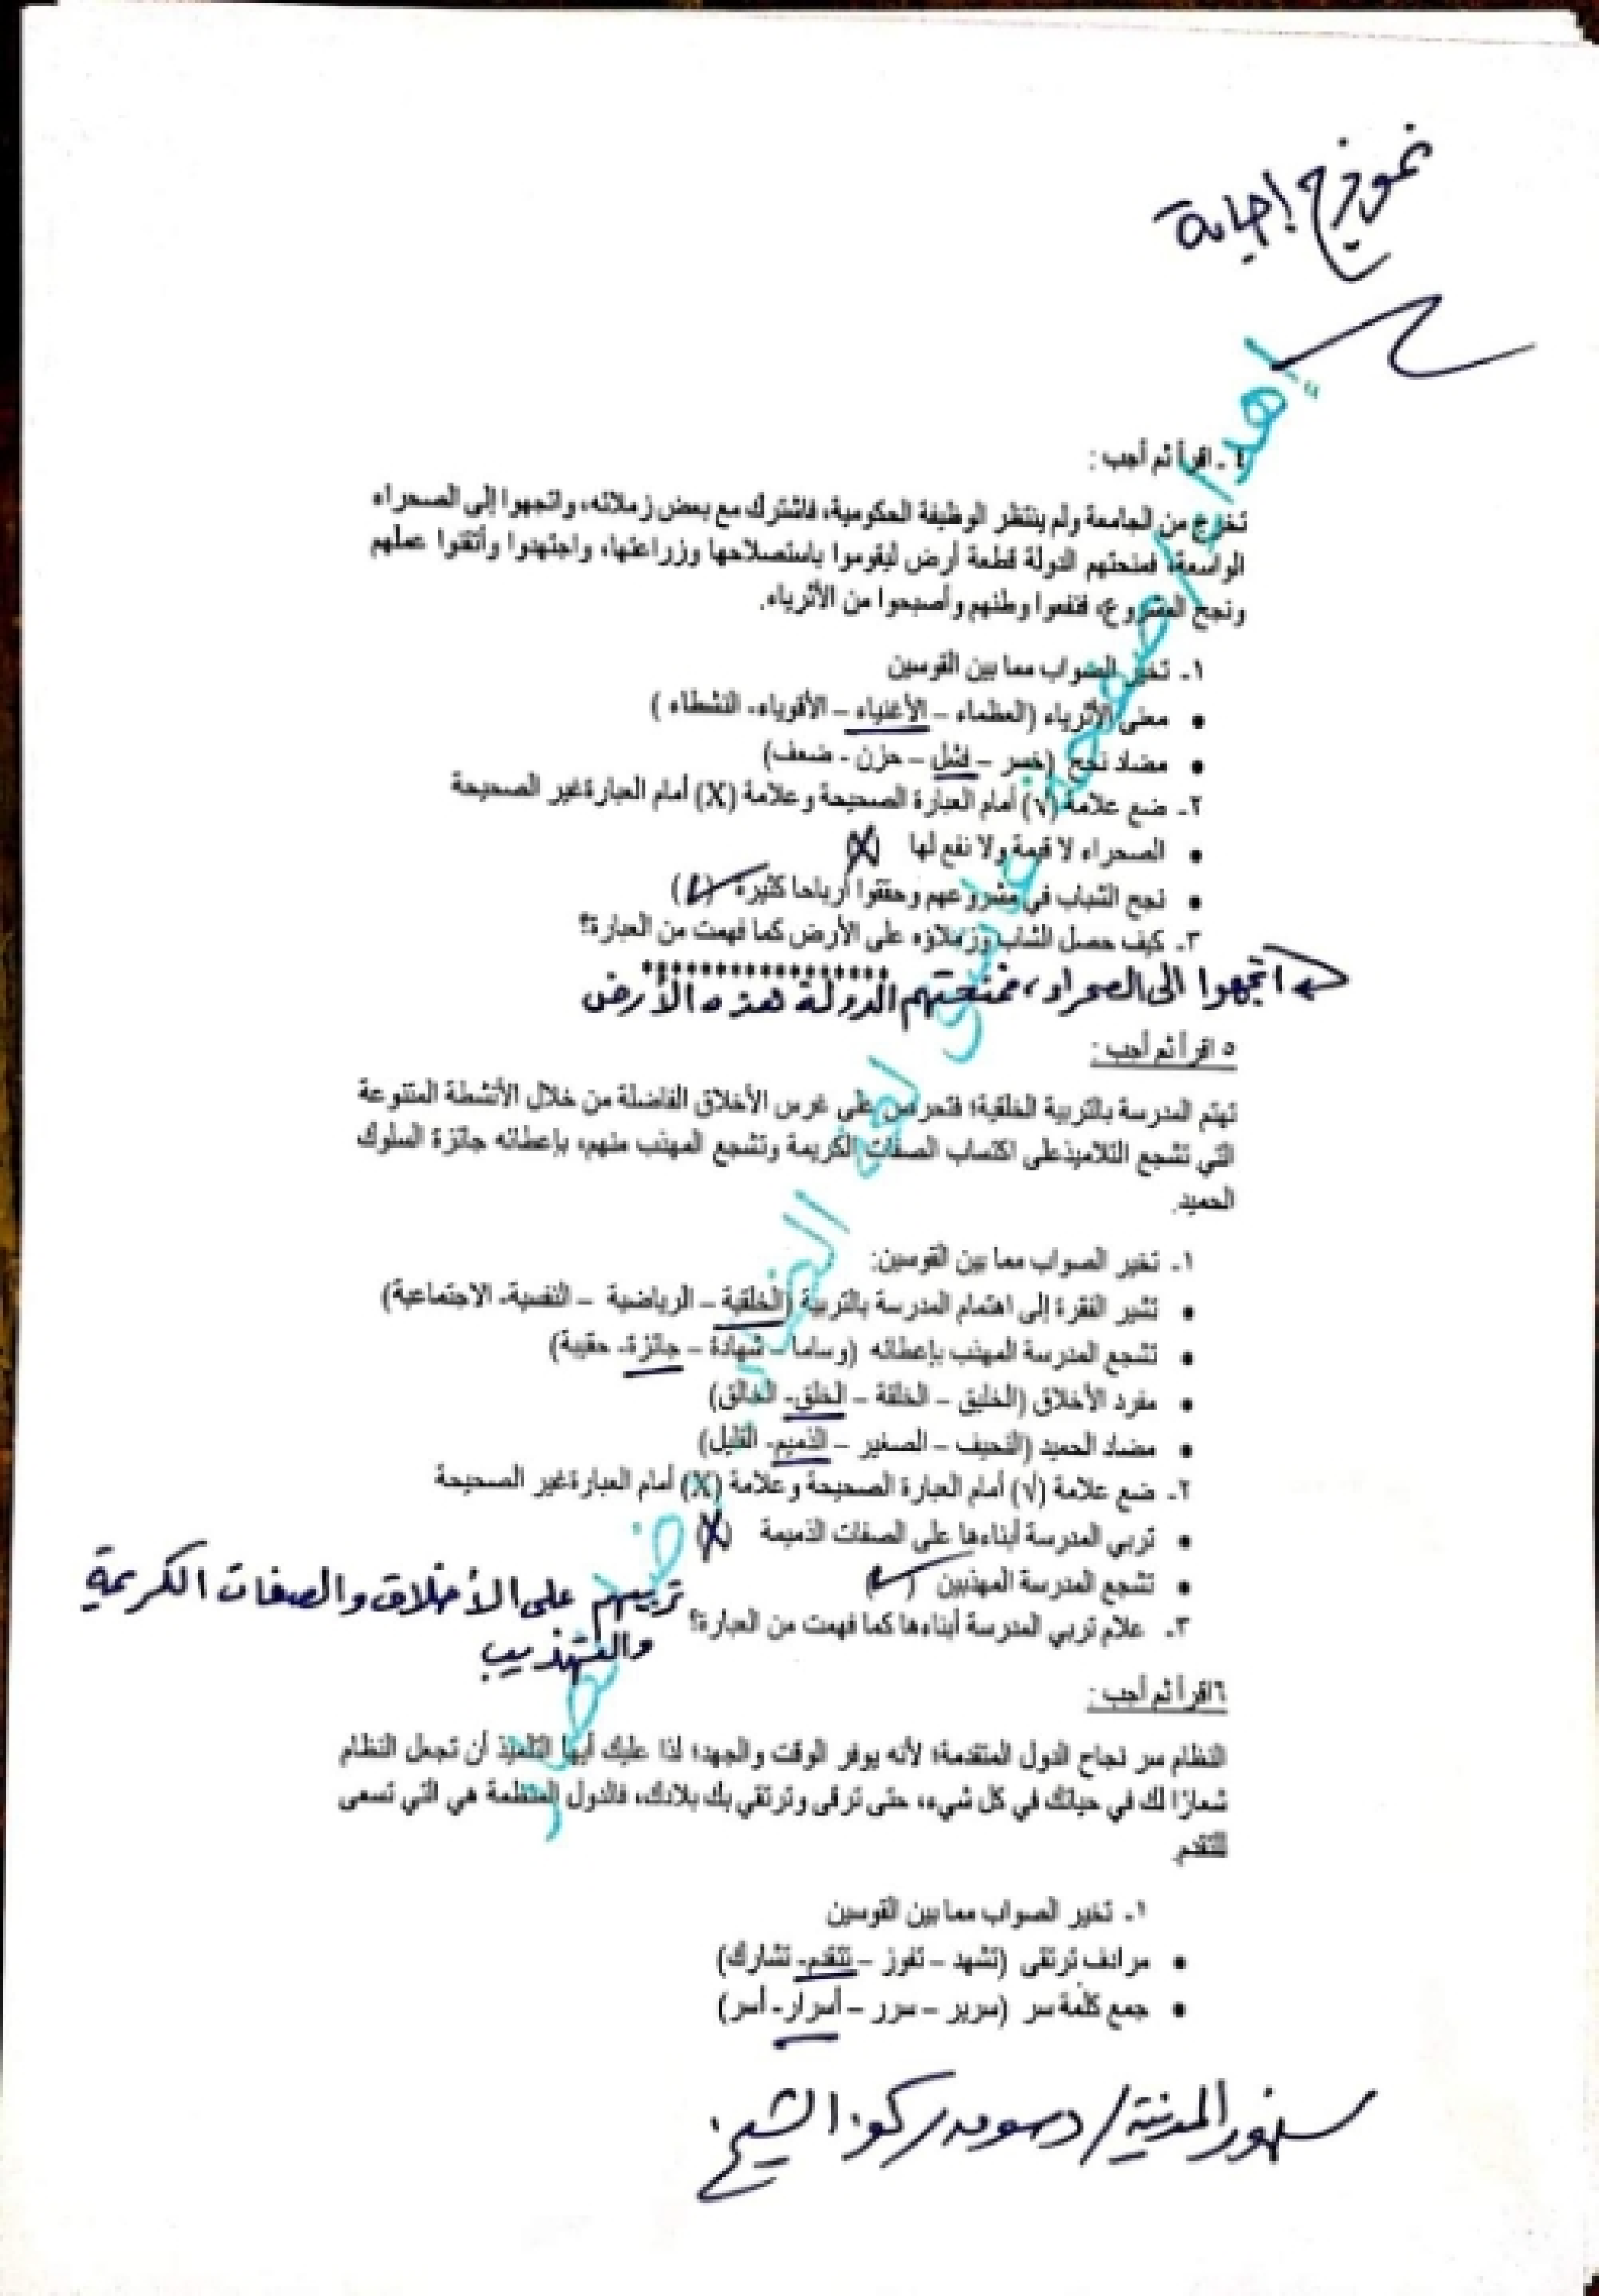 نموذج إجابة
٤ - اقرأ ثم أجب :
تخرج من الجامعة ولم ينتظر الوظيفة الحكومية، فاشترك مع بعض زملائه، واتجهوا إلى الصحراء
الواسعة، فمنحتهم الدولة قطعة أرض ليقوموا باستصلاحها وزراعتها، واجتهدوا وأتقنوا عملهم
ونجح المشروع، فنفعوا وطنهم وأصبحوا من الأثرياء.
١- تخير الصواب مما بين القوسين
• معنى الأثرياء (العظماء – الأغنياء – الأقوياء- النشطاء )
• مضاد نجح (خسر – فشل – حزن - ضعف)
٢- ضع علامة (√) أمام العبارة الصحيحة وعلامة (X) أمام العبارة غير الصحيحة
• الصحراء لا قيمة ولا نفع لها (X)
• نجح الشباب في مشروعهم وحققوا أرباحا كثيرة (√)
٣- كيف حصل الشاب وزملاؤه على الأرض كما فهمت من العبارة؟
اتجهوا الى الصحراء، فمنحتهم الدولة هذه الأرض
٥ اقرأ ثم أجب :
تهتم المدرسة بالتربية الخلقية؛ فتحرص على غرس الأخلاق الفاضلة من خلال الأنشطة المتنوعة
التي تشجع التلاميذعلى اكتساب الصفات الكريمة وتشجع المهذب منهم، بإعطائه جائزة السلوك
الحميد.
١- تخير الصواب مما بين القوسين:
• تشير الفقرة إلى اهتمام المدرسة بالتربية (الخلقية – الرياضية – النفسية- الاجتماعية)
• تشجع المدرسة المهذب بإعطائه (وساما – شهادة – جائزة- حقيبة)
• مفرد الأخلاق (الخليق – الخلقة – الخلق- الخالق)
• مضاد الحميد (النحيف – الصغير – الذميم- القليل)
٢- ضع علامة (√) أمام العبارة الصحيحة وعلامة (X) أمام العبارة غير الصحيحة
• تربي المدرسة أبناءها على الصفات الذميمة (X)
• تشجع المدرسة المهذبين (√)
٣- علام تربي المدرسة أبناءها كما فهمت من العبارة؟
تربيهم على الأخلاق والصفات الكريمة
والتهذيب
٦اقرأ ثم أجب :
النظام سر نجاح الدول المتقدمة؛ لأنه يوفر الوقت والجهد؛ لذا عليك أيها التلميذ أن تجعل النظام
شعارًا لك في حياتك في كل شيء، حتى ترقى وترتقي بك بلادك، فالدول المنظمة هي التي تسعى
للتقدم
١- تخير الصواب مما بين القوسين
• مرادف ترتقى (تشهد – تفوز – تتقدم- تشارك)
• جمع كلمة سر (سرير – سرر – أسرار- أسر)
سنهور المدينة / دسوق / كفر الشيخ